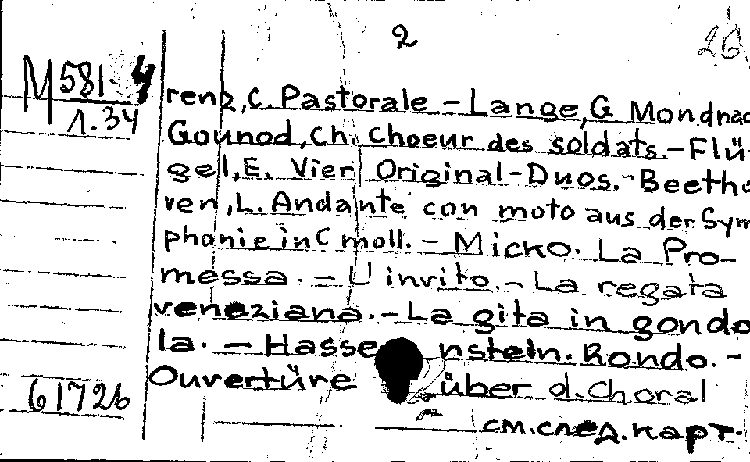 2
26
M581-4
1.34
renz, C. Pastorale - Lange, G Mondnac
Gounod, Ch. Choeur des soldats. - Flü-
gel, E. Vier Original-Duos. - Beetho
ven, L. Andante con moto aus der Sym
phonie in C moll. - Micko. La Pro-
messa. - L'invito. - La regata
veneziana. - La gita in gondo
la. - Hasse nstein. Rondo. -
Ouvertüre über d. Choral
61726
см. след. карт.